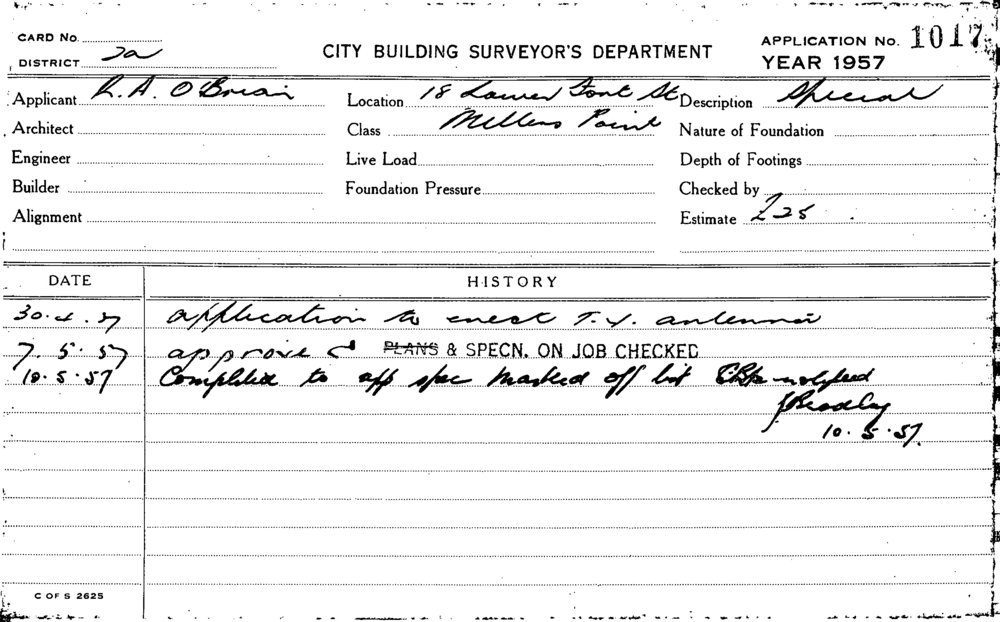 CARD No.
DISTRICT 2a
CITY BUILDING SURVEYOR'S DEPARTMENT
APPLICATION No. 1017
YEAR 1957
Applicant R. A. O'Brian Location 18 Lower Fort St Description Special
Architect Class Millers Point Nature of Foundation
Engineer Live Load Depth of Footings
Builder Foundation Pressure Checked by
Alignment Estimate £25
DATE HISTORY
30.4.57 application to erect T.V. antenna
7.5.57 approved PLANS & SPECN. ON JOB CHECKED
10.5.57 Completed to app spec marked off list notified
J Bradley
10.5.57.
C OF S 2625